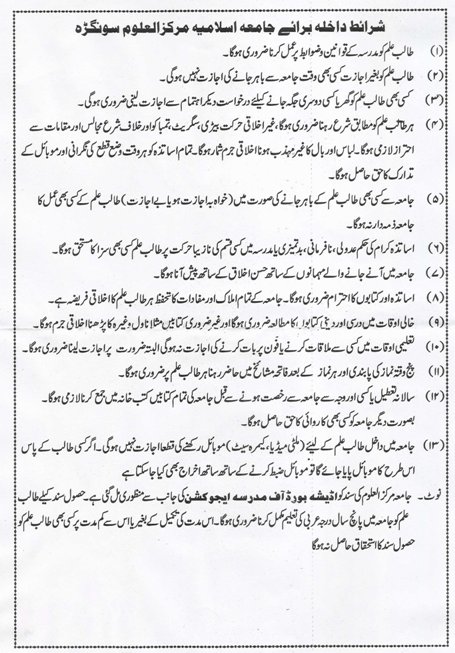 شرائط داخلہ برائے جامعہ اسلامیہ مرکز العلوم سونگڑہ
(۱) طالب علم کو مدرسہ کے قوانین و ضوابط پر عمل کرنا ضروری ہوگا۔
(۲) طالب علم کو بغیر اجازت کسی بھی وقت جامعہ سے باہر جانے کی اجازت نہیں ہوگی۔
(۳) کسی بھی طالب علم کو گھر یا کسی دوسری جگہ جانے کیلئے درخواست دیکر اہتمام سے اجازت لینی ضروری ہوگی۔
(۴) ہر طالب علم کو مطابق شرع رہنا ضروری ہوگا، غیر اخلاقی حرکت بیڑی، سگریٹ، تمباکو اور خلاف شرع مجالس اور مقامات سے
احتراز لازمی ہوگا۔ لباس اور بال کا غیر مہذب ہونا اخلاقی جرم شمار ہوگا۔ تمام اساتذہ کو ہر وقت وضع قطع کی نگرانی اور موبائل کے
تدارک کا حق حاصل ہوگا۔
(۵) جامعہ سے کسی بھی طالب علم کے باہر جانے کی صورت میں (خواہ بہ اجازت ہو یا بے اجازت) طالب علم کے کسی بھی عمل کا
جامعہ ذمہ دار نہ ہوگا۔
(۶) اساتذہ کرام کی حکم عدولی، نافرمانی، بدتمیزی یا مدرسہ میں کسی قسم کی نازیبا حرکت پر طالب علم کسی بھی سزا کا مستحق ہوگا۔
(۷) جامعہ میں آنے جانے والے مہمانوں کے ساتھ حسن اخلاق کے ساتھ پیش آنا ہوگا۔
(۸) اساتذہ اور کتابوں کا احترام ضروری ہوگا۔ جامعہ کے تمام املاک اور مفادات کا تحفظ ہر طالب علم کا اخلاقی فریضہ ہے۔
(۹) خالی اوقات میں درسی اور دینی کتابوں کا مطالعہ ضروری ہوگا اور غیر ضروری کتابیں مثلا ناول وغیرہ کا پڑھنا اخلاقی جرم ہوگا۔
(۱۰) تعلیمی اوقات میں کسی سے ملاقات کرنے یا فون پر بات کرنے کی اجازت نہ ہوگی البتہ ضرورت پر اجازت لینا ضروری ہوگا۔
(۱۱) پنج وقتہ نماز کی پابندی اور ہر نماز کے بعد فاتحہ مشائخ میں حاضر رہنا ہر طالب علم پر ضروری ہوگا۔
(۱۲) سالانہ تعطیل یا کسی اور وجہ سے جامعہ سے رخصت ہونے سے قبل جامعہ کی تمام کتابیں کتب خانہ میں جمع کرنا لازمی ہوگا۔
بصورت دیگر جامعہ کو بھی کاروائی کا حق حاصل ہوگا۔
(۱۳) جامعہ میں داخل طالب علم کے لیئے (ملٹی میڈیا، کیمرہ سیٹ) موبائل رکھنے کی قطعا اجازت نہیں ہوگی۔ اگر کسی طالب کے پاس
اس طرح کا موبائل پایا جائے گا تو موبائل ضبط کرنے کے ساتھ ساتھ اخراج بھی کیا جا سکتا ہے
نوٹ۔ جامعہ مرکز العلوم کی سند کو اڈیشہ بورڈ آف مدرسہ ایجوکشن کی جانب سے منظوری مل گئی ہے۔ حصول سند کیلئے طالب
علم کو جامعہ میں پانچ سال درجہ عربی کی تعلیم مکمل کرنا ضروری ہوگا۔ اس مدت کی تکمیل کے بغیر یا اس سے کم مدت پر کسی بھی طالب علم کو
حصول سند کا استحقاق حاصل نہ ہوگا